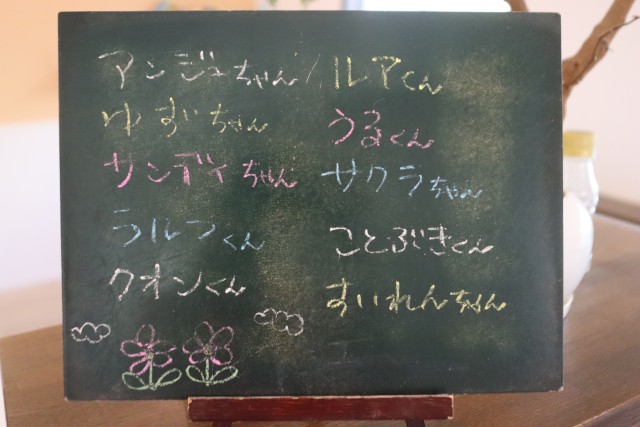 アンジュちゃん / ルアくん
ゆずちゃん
うるくん
サンディちゃん
サクラちゃん
ラルフくん
ことぶきくん
クオンくん
すいれんちゃん